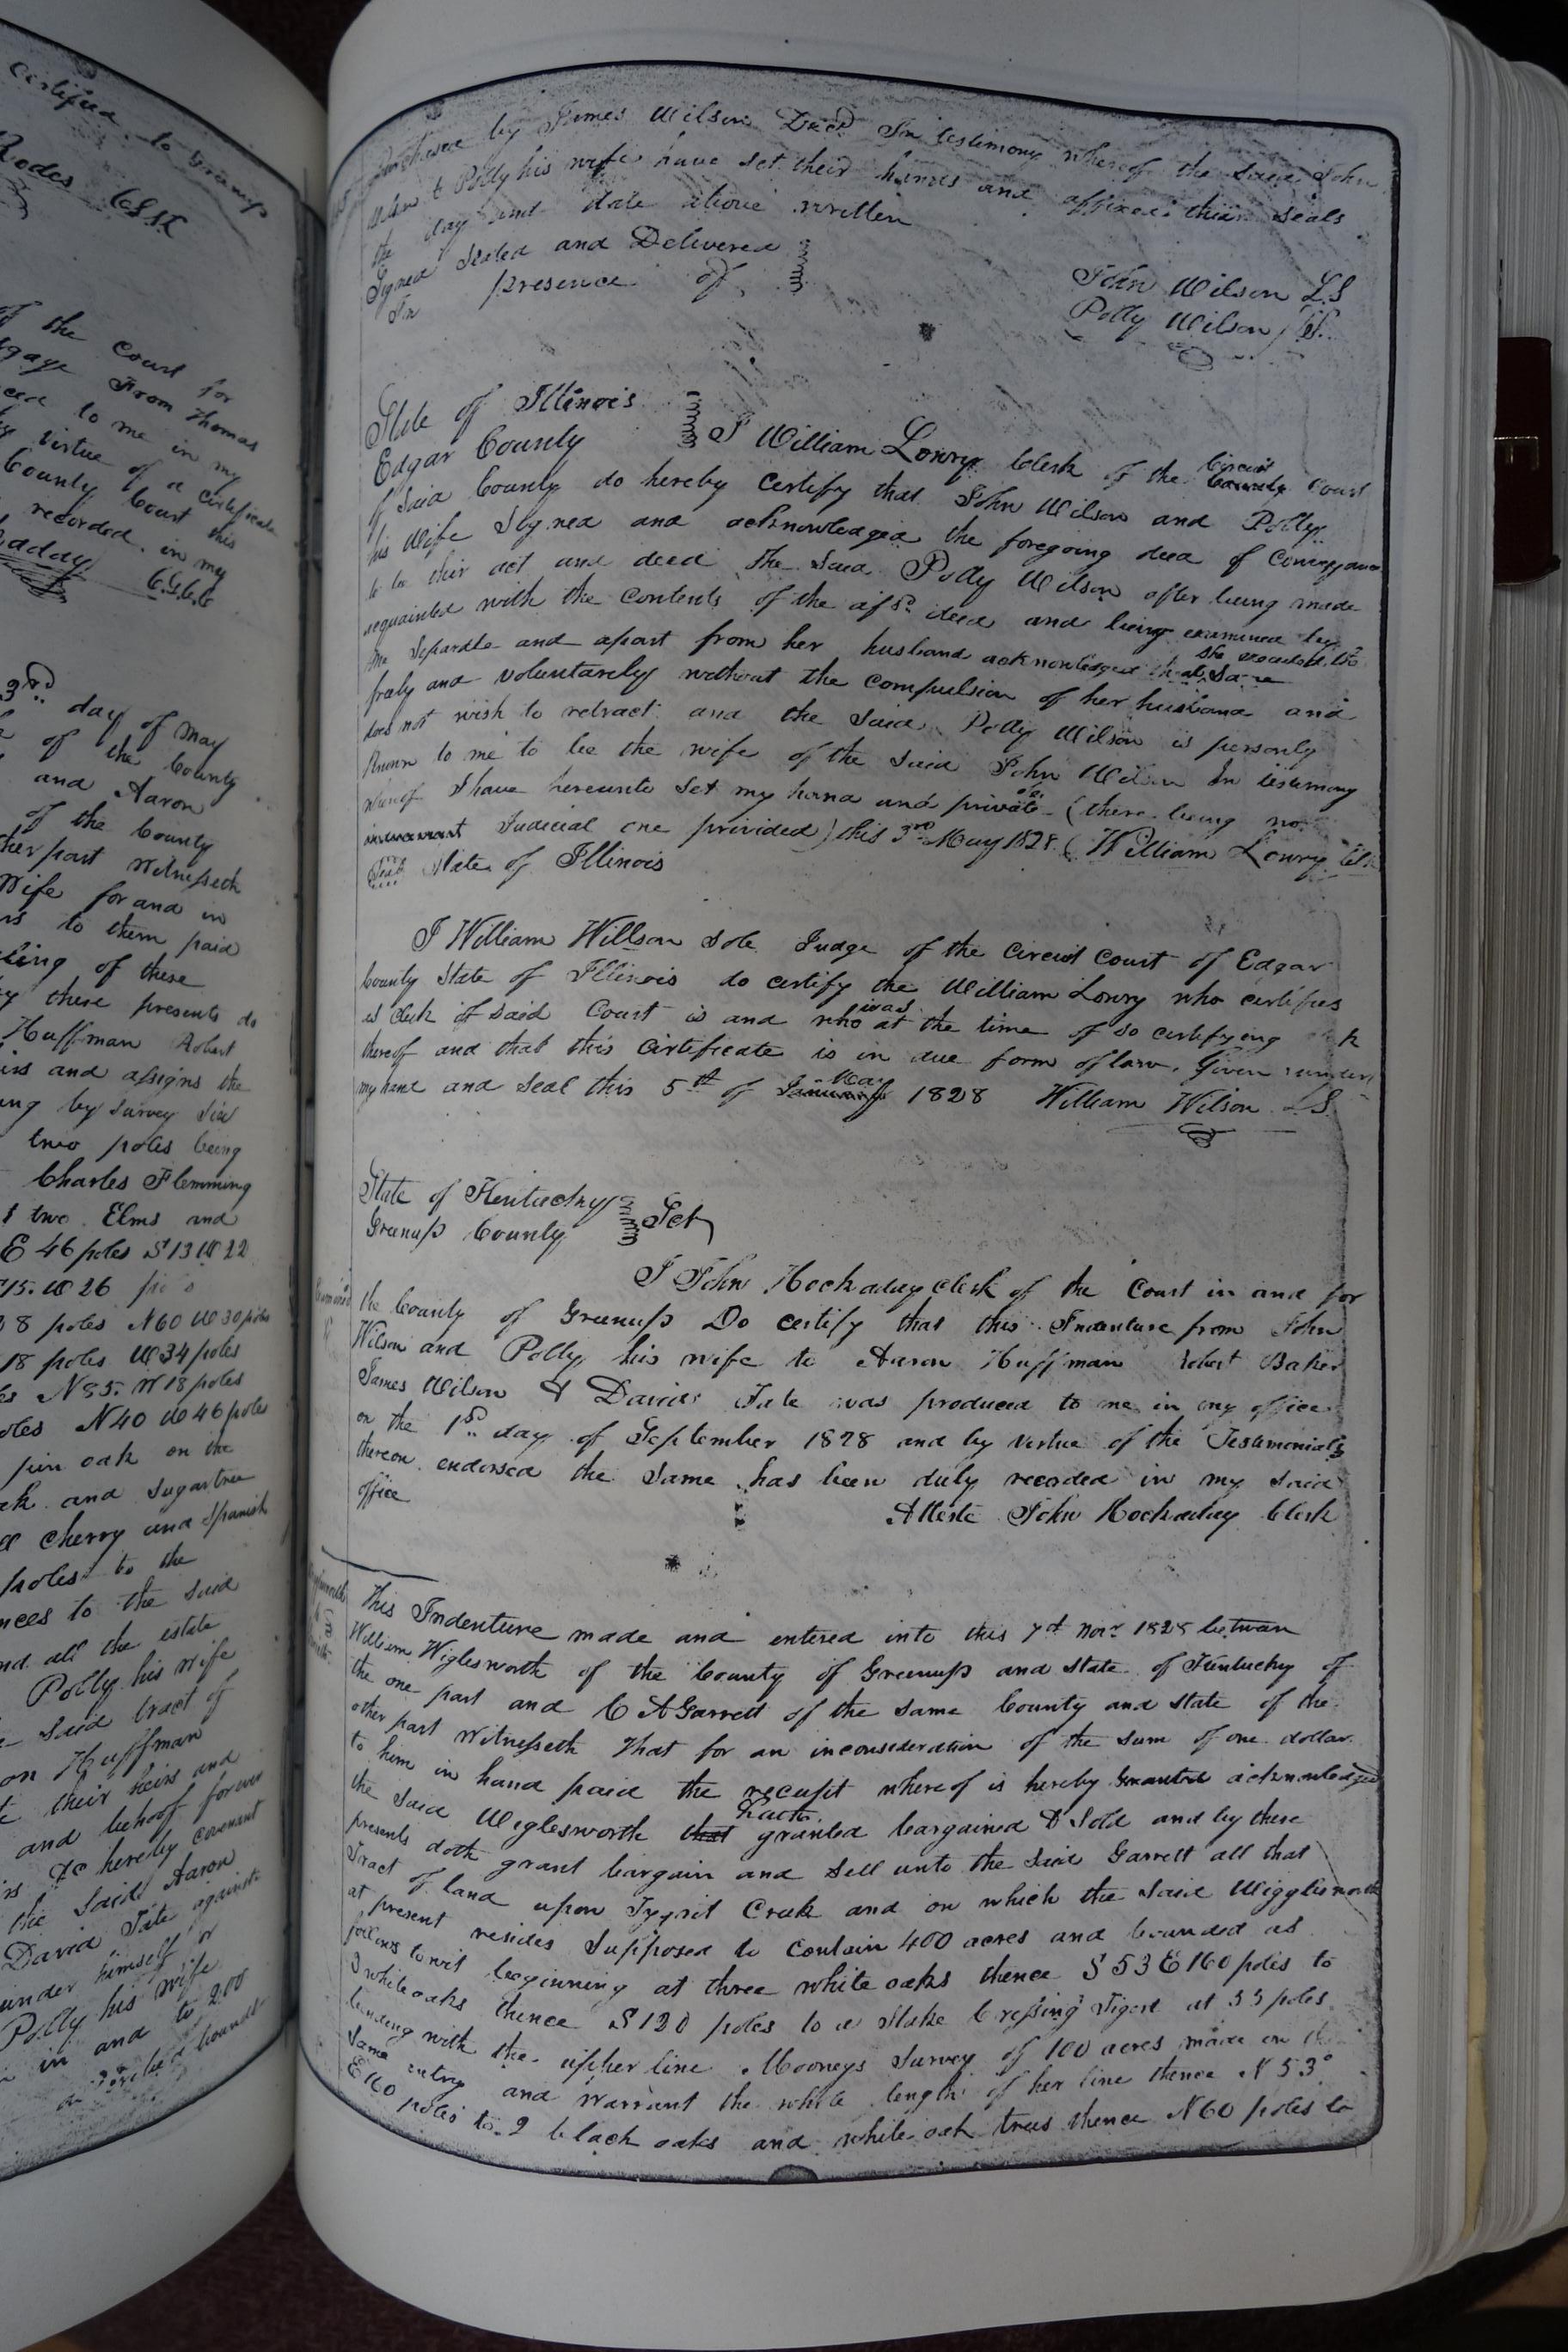 certified to Greenup
Rodes
of the Court for
gage From Thomas
ced to me in my
virtue of a certificate
County Court this
recorded in my
aday CGCC
3rd day of May
of the County
and Aaron
of the County
her part Witnesseth
Wife for and in
rs to them paid
ling of these
y these presents do
Huffman Robert
irs and assigns the
ing by survey
two poles being
Charles Flemming
two Elms and
E 46 poles S 13 W 22
15. W 26
8 poles N60 W 30 poles
18 poles W 34 poles
N 85. W 18 poles
oles N40 W 46 poles
pin oak on the
ak and Sugartree
cherry and Spanish
poles to the
nces to the said
nd all the estate
Polly his wife
said tract of
on Huffman
their heirs and
and behoof forever
hereby covenant
the said Aaron
David Tate against
under himself or
Polly his wife
in and to 200
bounds
by James Wilson Decd In testimony whereof the said John
Wilson & Polly his wife have set their hands and affixed their seals
the day and date above written
Signed Sealed and Delivered
In presence of
John Wilson LS
Polly Wilson LS.
State of Illinois
Edgar County I William Lowry Clerk of the Circuit Court
of Said County do hereby certify that John Wilson and Polly
his Wife Signed and acknowledged the foregoing deed of conveyance
to be their act and deed the said Polly Wilson after being made
acquainted with the contents of the afsd. deed and being examined by
me Separate and apart from her husband acknowledged that she executed the same
freely and voluntarely without the compulsion of her husband and
does not wish to retract and the said Polly Wilson is personly
known to me to be the wife of the said John Wilson In testimony
whereof I have hereunto set my hand and private (there being no
Judicial one provided) this 3rd May 1828 (William Lowry Clk
Seal State of Illinois
I William Willson Sole Judge of the Circuit Court of Edgar
County State of Illinois do certify the William Lowry who certifies
as Clerk of said Court is and who was at the time of so certifying
thereof and that this certificate is in due form of law. Given under
my hand and Seal this 5th of May 1828 William Wilson LS
State of Kentucky
Greenup County Sct
I John Hockaday Clerk of the Court in and for
the County of Greenup Do certify that this Indenture from John
Wilson and Polly his wife to Aaron Huffman Robert Baker
James Wilson & David Tate was produced to me in my office
on the 1st day of September 1828 and by virtue of the Testimonials
thereon endorsed the same has been duly recorded in my said
office Atteste John Hockaday Clerk
This Indenture made and entered into this 7th Novr 1828 between
William Wiglesworth of the County of Greenup and State of Kentucky of
the one part and C A Garrett of the same County and state of the
other part Witnesseth that for an inconsideration of the sum of one dollar
to him in hand paid the receipt whereof is hereby granted acknowledged
the said Wiglesworth that hath granted bargained & Sold and by these
presents doth grant bargain and sell unto the said Garrett all that
Tract of land upon Tygart Creek and on which the said Wigglesworth
at present resides Supposed to contain 400 acres and bounded as
follows towit beginning at three white oaks thence S 53 E 160 poles to
3 white oaks thence S 120 poles to a Stake Crossing Tigert at 33 poles
binding with the upher line Mooneys Survey of 100 acres made on the
same entry and warrant the whole length of her line thence N 53°
E 160 poles to 2 black oaks and white oak trees thence N60 poles to